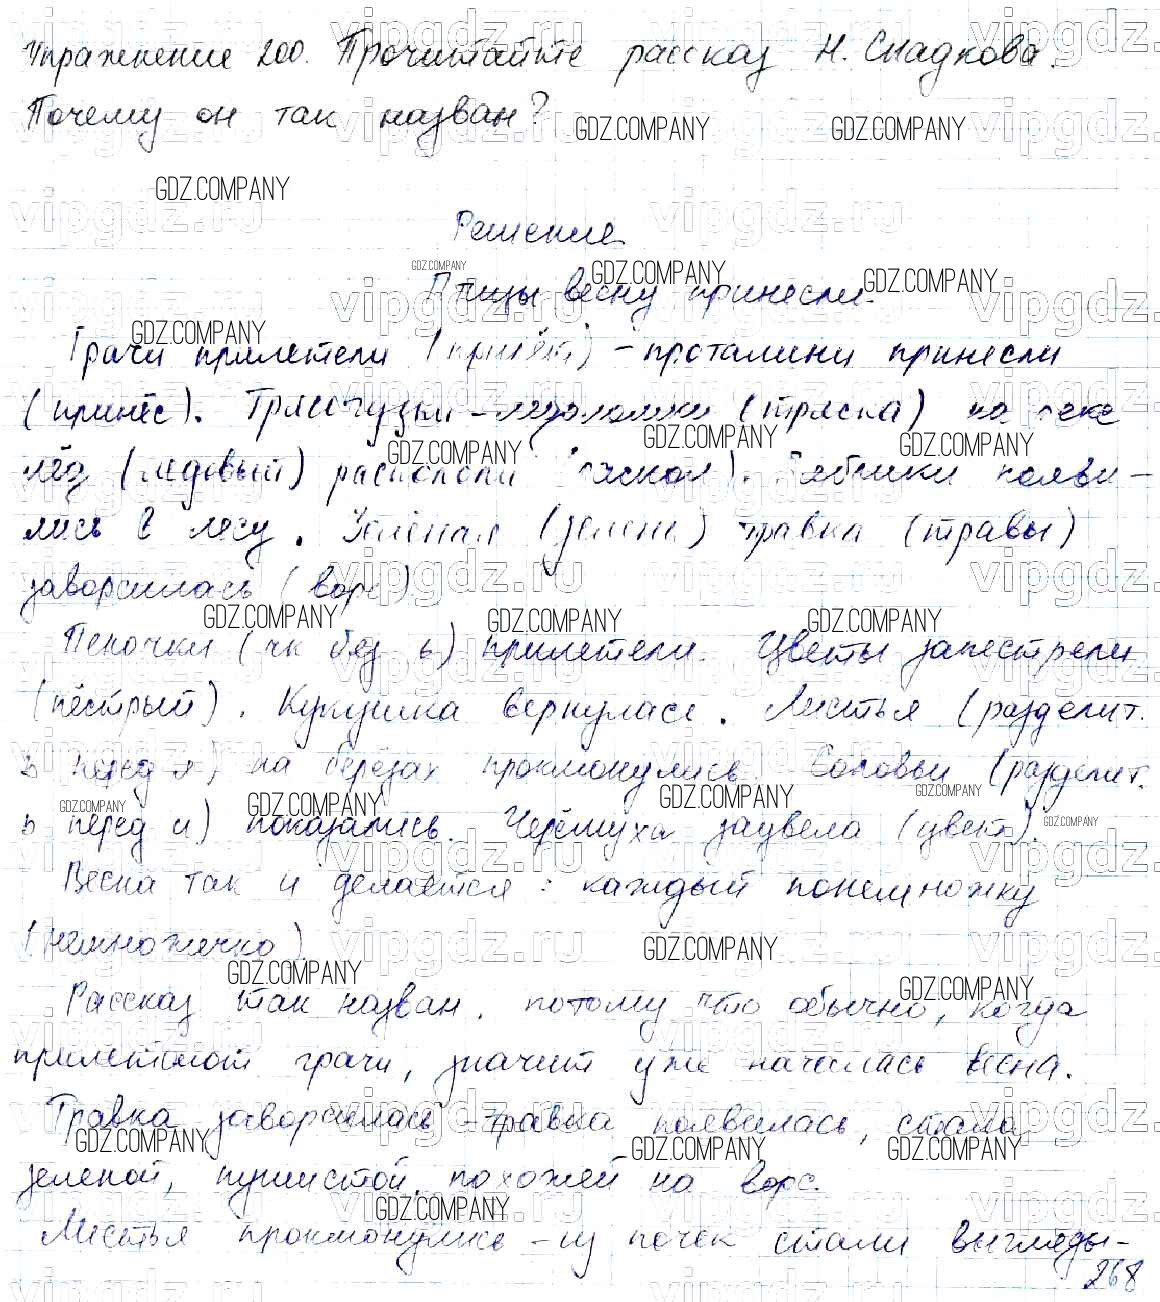 Упражнение 200. Прочитайте рассказ Н. Сладкова.
Почему он так назван?
Решение
Птицы весну принесли.
Грачи прилетели (прилёт) - проталины принесли
(принёс). Трясогузки-ледоломки (тряска) на реке
лёд (ледовый) раскололи (раскол). Зяблики появи-
лись в лесу. Зелёная (зелень) травка (травы)
заворсилась (ворс)
Пеночки (чк без ь) прилетели. Цветы запестрели
(пёстрый). Кукушка вернулась. Листья (разделит.
ь перед я) на берёзах проклюнулись. Соловьи (разделит.
ь перед и) показались. Черёмуха зацвела (цвет).
Весна так и делается: каждый понемножку
(немножечко)
Рассказ так назван, потому что обычно, когда
прилетают грачи, значит уже началась весна.
Травка заворсилась - травка появилась, стала
зеленой, пушистой, похожей на ворс.
Листья проклюнулись - из почек стали выгляды-
268